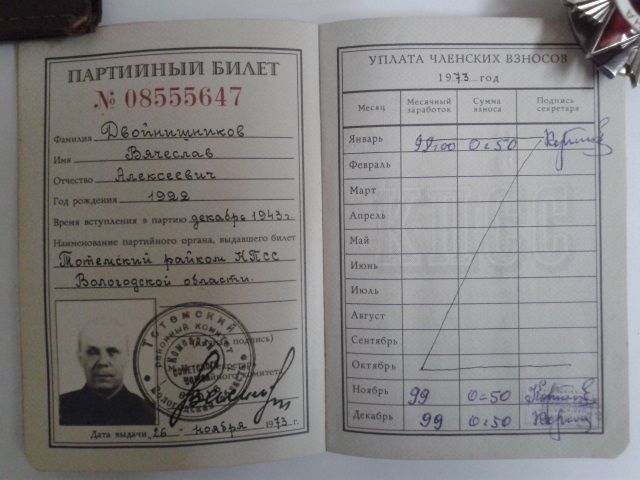 ПАРТИЙНЫЙ БИЛЕТ
№ 08555647
Фамилия Двойнишников
Имя Вячеслав
Отчество Алексеевич
Год рождения 1922
Время вступления в партию декабрь 1943 г.
Наименование партийного органа, выдавшего билет
Тотемский райком КПСС
Вологодской области.
Дата выдачи 26 ноября 1973 г.
УПЛАТА ЧЛЕНСКИХ ВЗНОСОВ
1973 год
Месяц Месячный заработок Сумма взноса Подпись секретаря
Январь 99-00 0-50
Февраль
Март
Апрель
Май
Июнь
Июль
Август
Сентябрь
Октябрь
Ноябрь 99 0-50
Декабрь 99 0-50